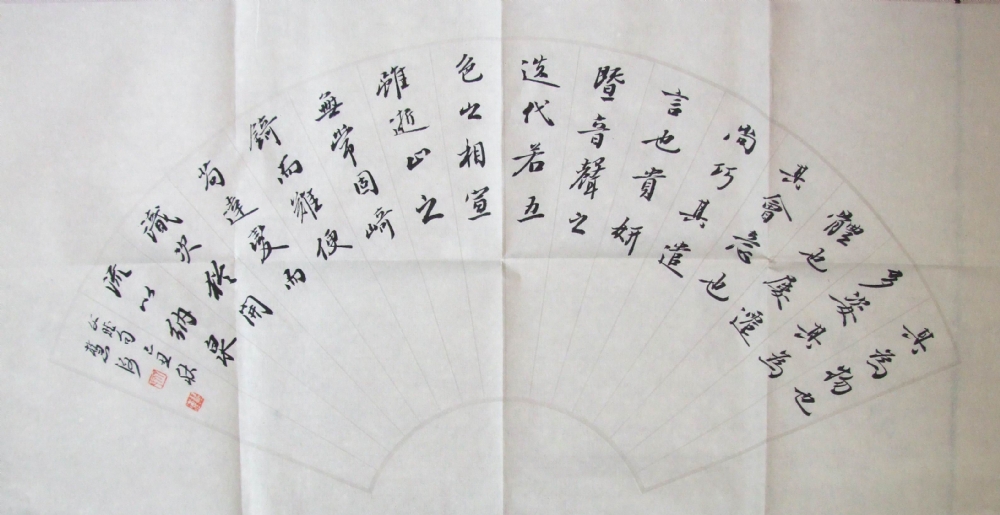 其為物也
多姿其為
體也屢遷
其會意也
尚巧其遣
言也貴妍
暨音聲之
迭代若五
色之相宣
雖逝止之
無常固崎
錡而難便
苟達變而
識次於開
流以納泉
文賦句己丑秋